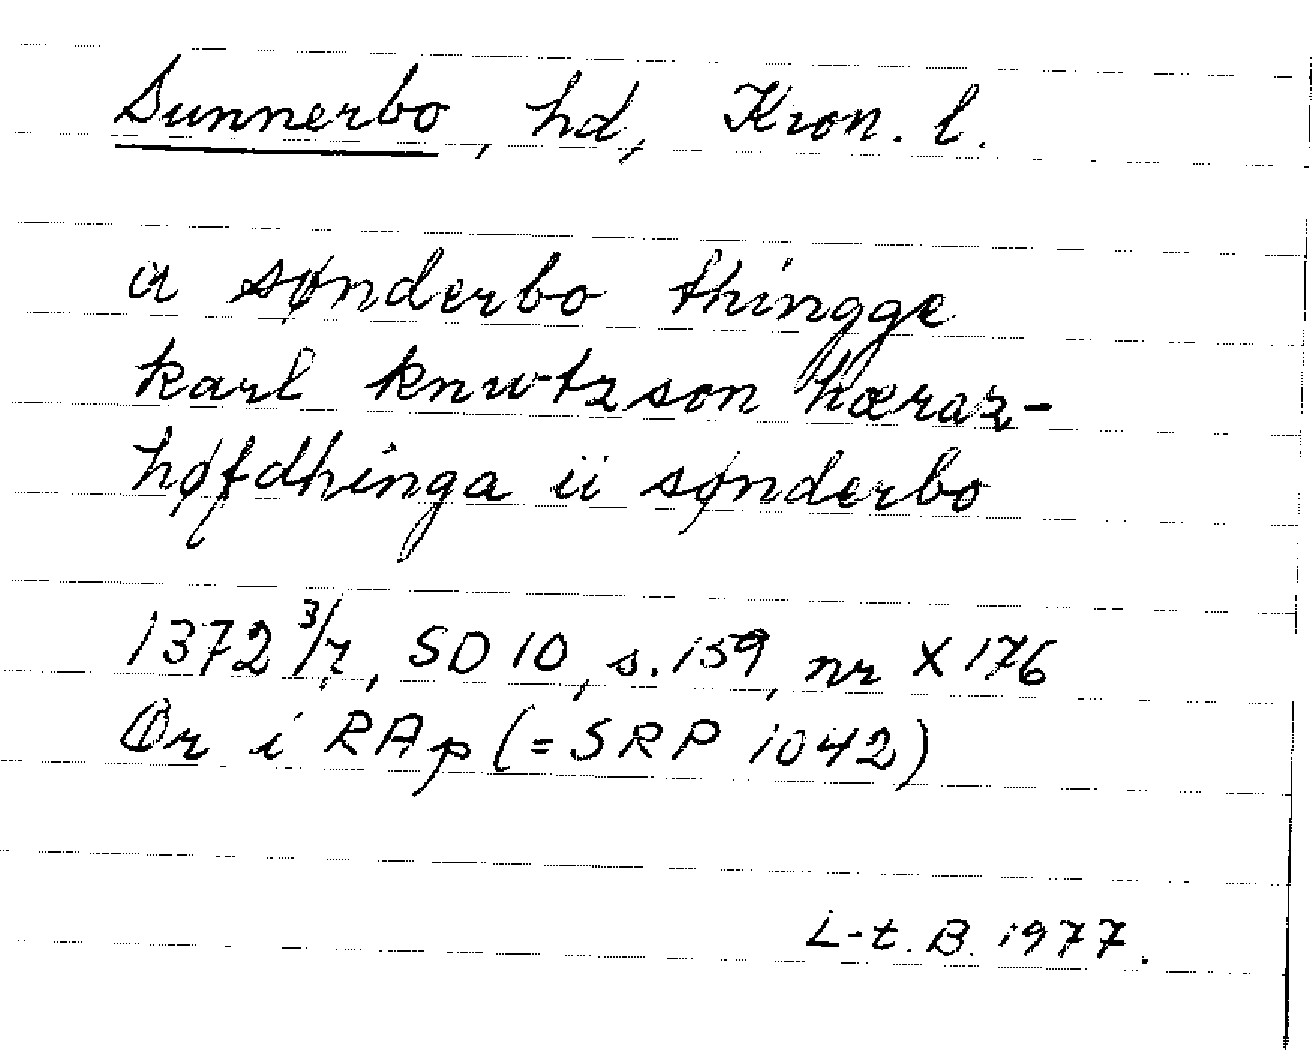 Sunnerbo, hd, Kron. l.
a sønderbo thingge
karl knwtzson hæraz-
høfdhinga ii sønderbo
1372 3/7, SD 10, s. 159, nr X 176
Or i RAp (= SRP 1042)
L-t. B. 1977.